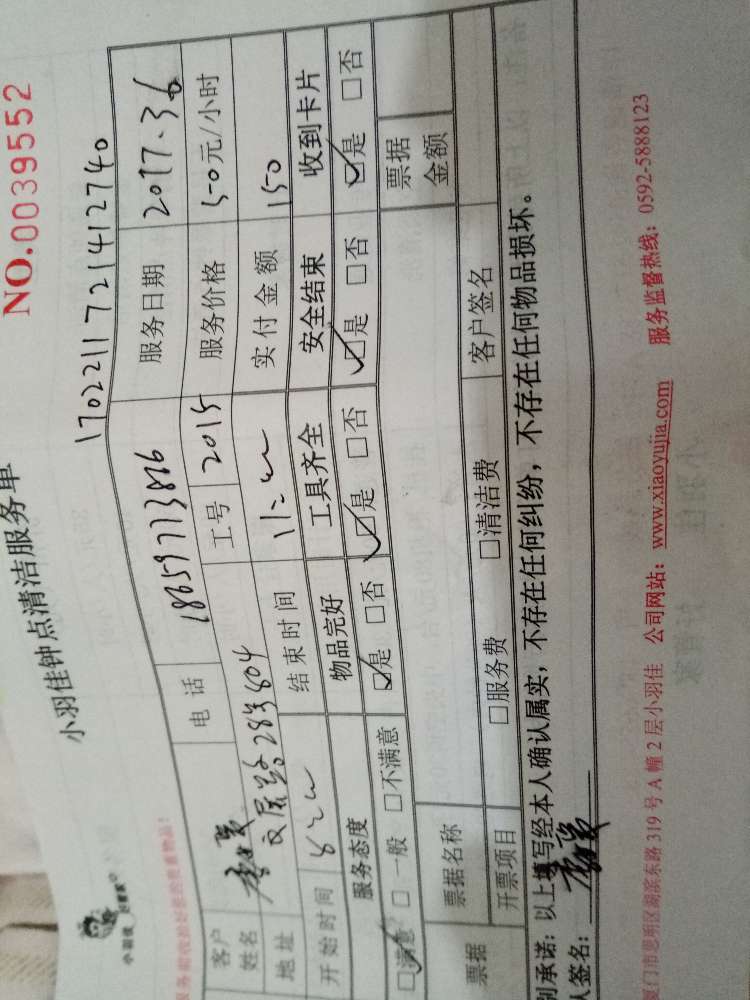 小羽佳钟点清洁服务单
NO.0039552
小羽佳
17022117721412740
客户姓名 电话 18659713826 服务日期 2017.3.6
地址 28号804 工号 2015 服务价格 50元/小时
开始时间 结束时间 实付金额 150
服务态度 物品完好 工具齐全 安全结束 收到卡片
☑满意 □一般 □不满意 ☑是 □否 ☑是 □否 ☑是 □否 ☑是 □否
票据 票据名称 票据金额
开票项目 □服务费 □清洁费 客户签名
承诺：以上填写经本人确认属实，不存在任何纠纷，不存在任何物品损坏。
人签名：
厦门市思明区湖滨东路319号A幢2层小羽佳 公司网站：www.xiaoyujia.com 服务监督热线：0592-5888123